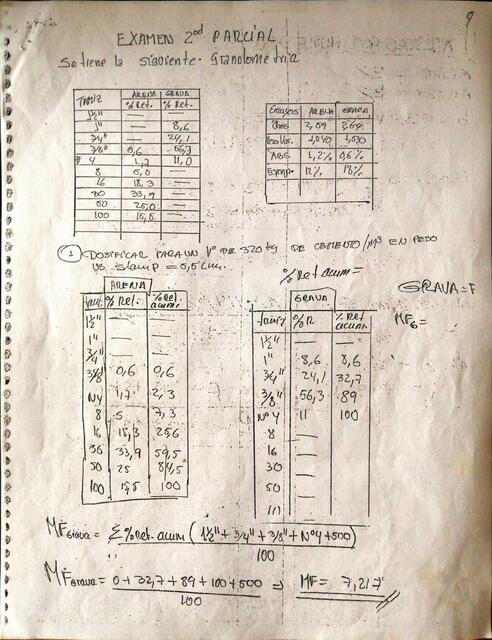 9
EXAMEN 2od PARCIAL
Se tiene la siguiente Granulometria
TAMIZ ARENA % Ret. GRAVA % Ret.
1½" — —
1" — 8,6
3/4" — 24,1
3/8" 0,6 56,3
# 4 1,7 11,0
8 5,0 —
16 18,3 —
30 33,9 —
50 25,0 —
100 15,5 —
Ensayos ARENA GRAVA
2,59 2,64
1,840 1,530
ABS. 1,2% 0,6%
Esponj. 12% 18%
1 DOSIFICAR PARA UN 1º DE 320 kg DE CEMENTO/M³ EN PESO
vs slamp = 5,5 cm.
% Ret acum =
GRAVA = F
MFG =
ARENA
Tamiz % Rel. % Rel. acum.
1½" — —
1" — —
3/4" — —
3/8 0,6 0,6
N4 1,7 2,3
8 5 7,3
16 18,3 25,6
30 33,9 59,5
50 25 84,5
100 15,5 100
GRAVA
Tamiz % R % Rel acum.
1½" — —
1" 8,6 8,6
3/4" 24,1 32,7
3/8" 56,3 89
Nº 4 11 100
8 —
16 —
30 —
50 —
100 —
MF Grava = Σ % Ret. acum (1½" + 3/4" + 3/8" + Nº4 + 500)
100
MF Grava = 0 + 32,7 + 89 + 100 + 500 ⇒ MF = 7,217
100